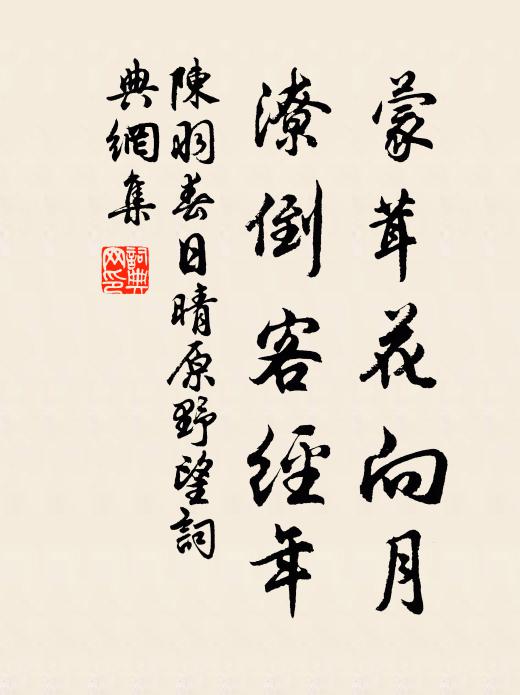 蒙茸花向月
潦倒客經年
陳羽春日晴原野望詞
典網集
詞典網印